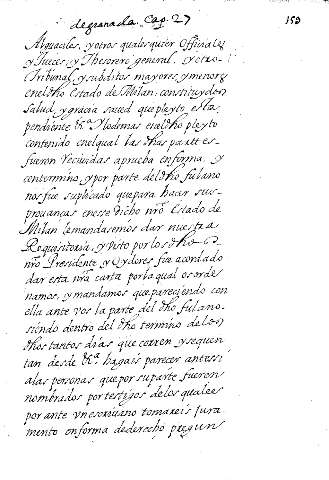 degranada. Cap. 27 153
Alguaciles, y otros qualesquier Officiales
y Jueces y Thesorero general. y otro
Tribunal, y subditos mayores y menores
en el dho Estado de Milan constituydos
salud, y gracia saued que pleyto esta
pendiente &ª Y lo demas en el dho pleyto
contenido en el qual las dhas partes
fueron recividas a prueba en forma, y
con termino, y por parte del dho fulano
nos fue suplicado que para hacer sus
prouanças en ese dicho nrõ Estado de
Milan le mandasemos dar nuestra
Requisitoria, y visto por los dho
nrõ Presidente y Oydores fue acordado
dar esta nrã carta por la qual os orde
namos, y mandamos que pareçiendo con
ella ante vos la parte del dho fulano.
siendo dentro del dho termino de los
dhos tantos dias que corren y se quen
tan desde &ª hagais parecer ante si
a las personas que por su parte fueren
nombrados por testigos de los quales
por ante vn escriuano tomareis Jura
mento en forma de derecho pregun